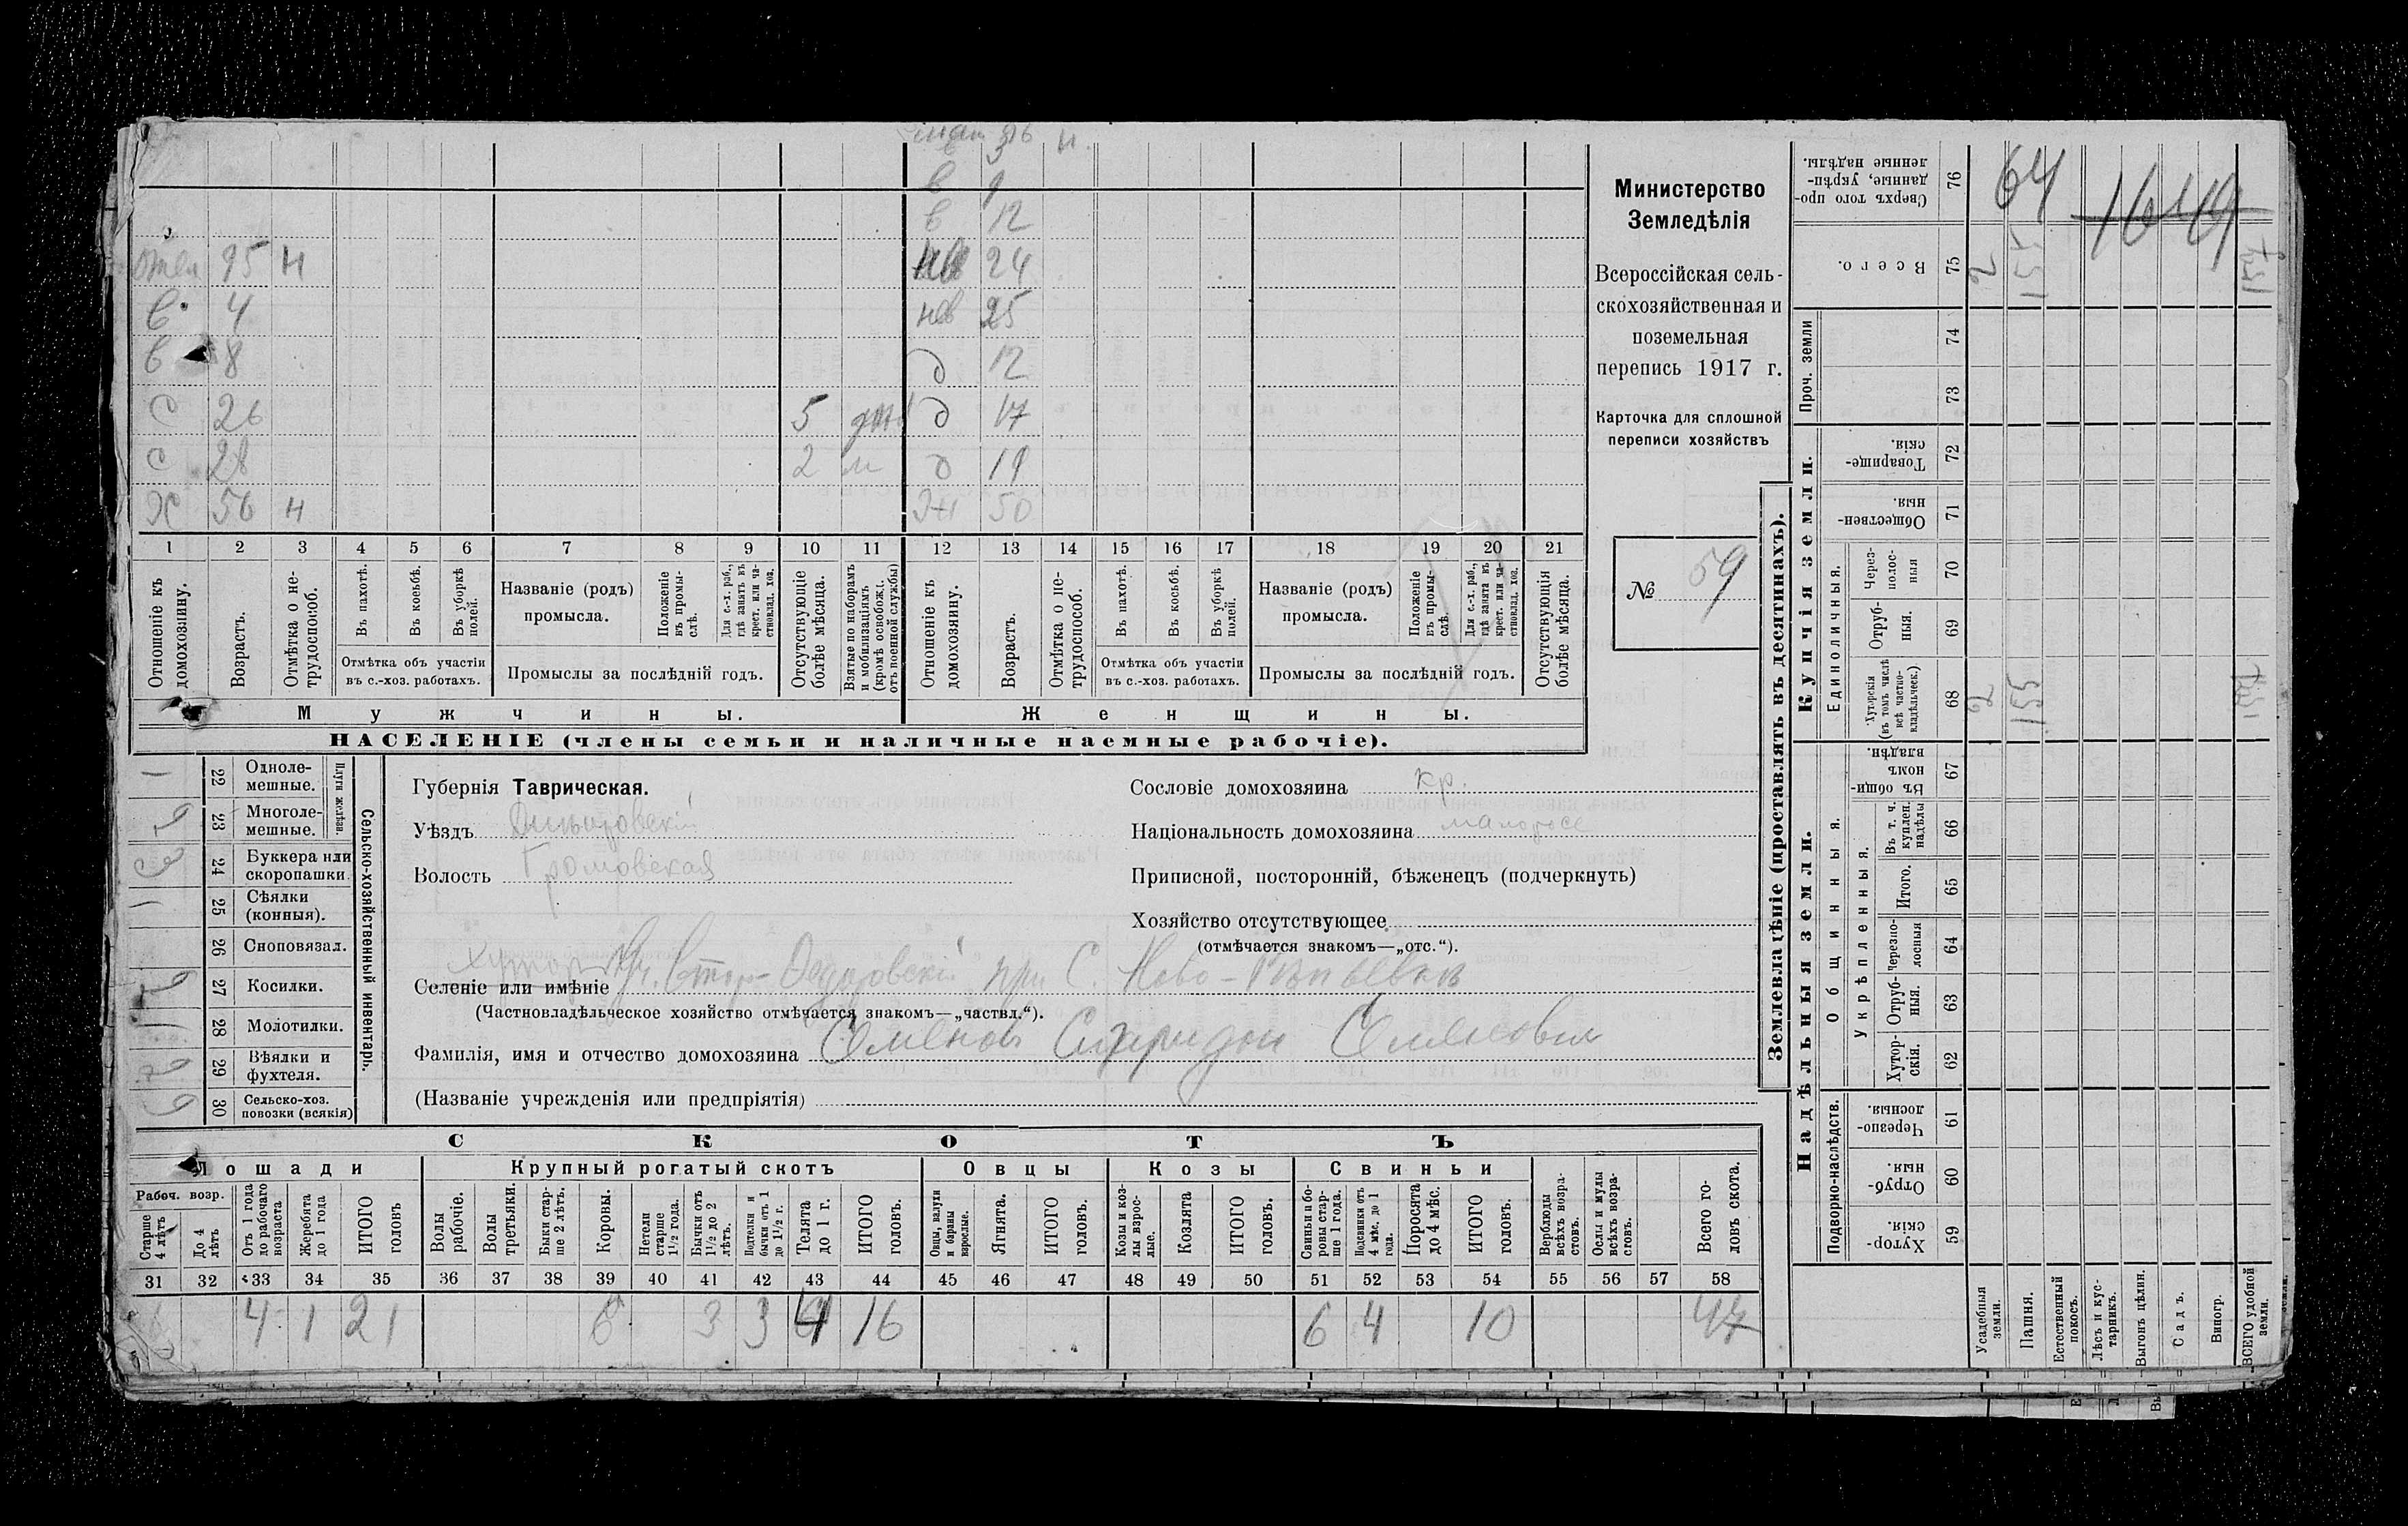 Министерство
Земледѣлія
Всероссійская сель-
скохозяйственная и
поземельная
перепись 1917 г.
Карточка для сплошной
переписи хозяйствъ
№ 59
в 9
в 12
95 н 24
в 4 нев 25
в 8 д 12
с 26 5 д 17
с 28 2 м д 19
Х 56 н Ж 50
1 2 3 4 5 6 7 8 9 10 11 12 13 14 15 16 17 18 19 20 21
Отношеніе къ домохозяину.
Возрастъ.
Отмѣтка о не-трудоспособ.
Въ пахотѣ.
Въ косьбѣ.
Въ уборкѣ полей.
Отмѣтка объ участіи
въ с.-хоз. работахъ.
Названіе (родъ)
промысла.
Положеніе въ промы-слѣ.
Для с.-х. раб., гдѣ занятъ въ крест. или ча-стновлад. хоз.
Промыслы за послѣдній годъ.
Отсутствующіе болѣе мѣсяца.
Взятые по наборамъ и мобилизаціямъ (кромѣ освобожд. отъ военной службы)
Отношеніе къ домохозяину.
Возрастъ.
Отмѣтка о не-трудоспособ.
Въ пахотѣ.
Въ косьбѣ.
Въ уборкѣ полей.
Отмѣтка объ участіи
въ с.-хоз. работахъ.
Названіе (родъ)
промысла.
Положеніе въ промы-слѣ.
Для с.-х. раб., гдѣ занята въ крест. или ча-стновлад. хоз.
Промыслы за послѣдній годъ.
Отсутствующія болѣе мѣсяца.
Мужчины. Женщины.
НАСЕЛЕНІЕ (члены семьи и наличные наемные рабочіе).
Сельско-хозяйственный инвентарь.
Плуги желѣзн.
22 Однолемешные. 1
23 Многолемешные.
24 Буккера или скоропашки
25 Сѣялки (конныя). 1
26 Сноповязал.
27 Косилки.
28 Молотилки. 1
29 Вѣялки и фухтеля.
30 Сельско-хоз. повозки (всякія)
Губернія Таврическая.
Уѣздъ Днѣпровскій
Волость Громовская
Сословіе домохозяина кр.
Національность домохозяина малоросс
Приписной, посторонній, бѣженецъ (подчеркнуть)
Хозяйство отсутствующее
(отмѣчается знакомъ—„отс.“).
Селеніе или имѣніе хутор при С. Ново-
(Частновладѣльческое хозяйство отмѣчается знакомъ—„частвл.“).
Фамилія, имя и отчество домохозяина Семенов Спиридон Семенович
(Названіе учрежденія или предпріятія)
СКОТЪ
Лошади Крупный рогатый скотъ Овцы Козы Свиньи
Рабоч. возр.
Старше 4 лѣтъ
До 4 лѣтъ
Отъ 1 года до рабочаго возраста
Жеребята до 1 года
ИТОГО головъ
Волы рабочіе.
Волы третьяки.
Быки стар-ше 2 лѣтъ.
Коровы.
Нетели старше 1½ года.
Бычки отъ 1½ до 2 лѣтъ.
Подтелки и бычки отъ 1 до 1½ г.
Телята до 1 г.
ИТОГО головъ.
Овцы, валухи и бараны взрослые.
Ягнята.
ИТОГО головъ.
Козы и коз-лы взрос-лые.
Козлята
ИТОГО головъ.
Свиньи и бо-ровы стар-ше 1 года.
Подсвинки отъ 4 мѣс. до 1 года.
Поросята до 4 мѣс.
ИТОГО головъ.
Верблюды всѣхъ возра-стовъ.
Ослы и мулы всѣхъ возра-стовъ.
Всего го-ловъ скота.
31 32 33 34 35 36 37 38 39 40 41 42 43 44 45 46 47 48 49 50 51 52 53 54 55 56 57 58
4 1 21 6 3 3 4 16 6 4 10 47
Землевладѣніе (проставлять въ десятинахъ).
Надѣльныя земли. Купчія земли.
Сверхъ того про-данные, укрѣп-ленные надѣлы. 76
64 1619
Всего. 75 2 151
Проч. земли 74 73
Товарище-скія. 72
Обществен-ныя. 71
Единоличныя.
Через-полос-ныя 70
Отруб-ныя. 69
Хуторскія (въ томъ числѣ всѣ частно-владѣльческ.) 68 2 151
Общинныя.
Въ общи-номъ владѣн. 67
Укрѣпленныя.
Въ т. ч. куплен. надѣлы 66
Итого. 65
Черезпо-лосныя 64
Отруб-ныя. 63
Хутор-скія. 62
Подворно-наслѣдств.
Черезпо-лосныя. 61
Отруб-ныя. 60
Хутор-скія. 59
Усадебныя земли.
Пашня.
Естественный покосъ.
Лѣсъ и кус-тарникъ.
Выгонъ цѣлин.
Садъ.
Виногр.
ВСЕГО удобной земли.